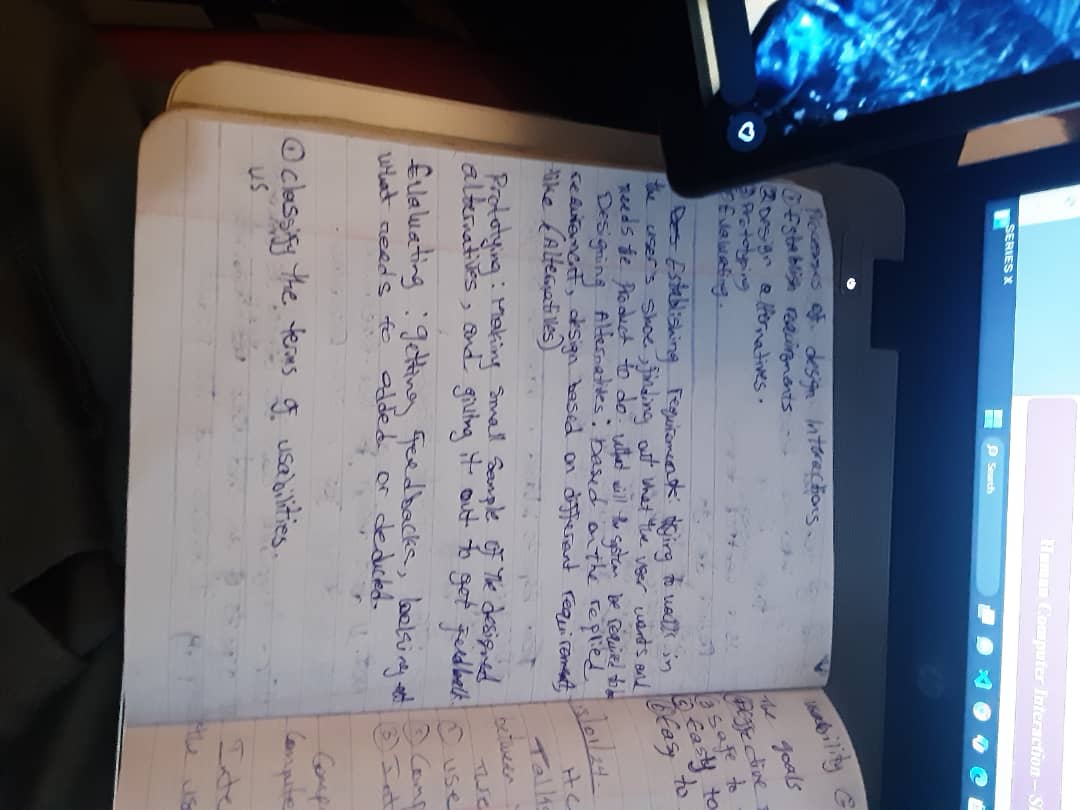 Human Computer Interaction – Sl
SERIES X
Search
Processes of design Interactions.
① Establish requirements
② Design alternatives.
③ Prototyping
④ Evaluating.
Establishing requirements: trying to walk in
the user's shoe, finding out what the user wants and
needs the Product to do. what will the system be required to do
Designing Alternatives: based on the replied
requirement, design based on different requirement,
like (Alternatives)
Prototying: Making small sample of the designed
alternatives, and giving it out to get feedback.
Evaluating: getting feedbacks, looking
what needs to added or deducted.
① classify the terms of usabilities.
us
usability G
The goals
① Effective
③ Safe to
⑤ Easy to
⑥ Easy to
/01/24.
HC
Talk
between
① use
② Comp
③ Int
Comp
Compute
Inte
the us